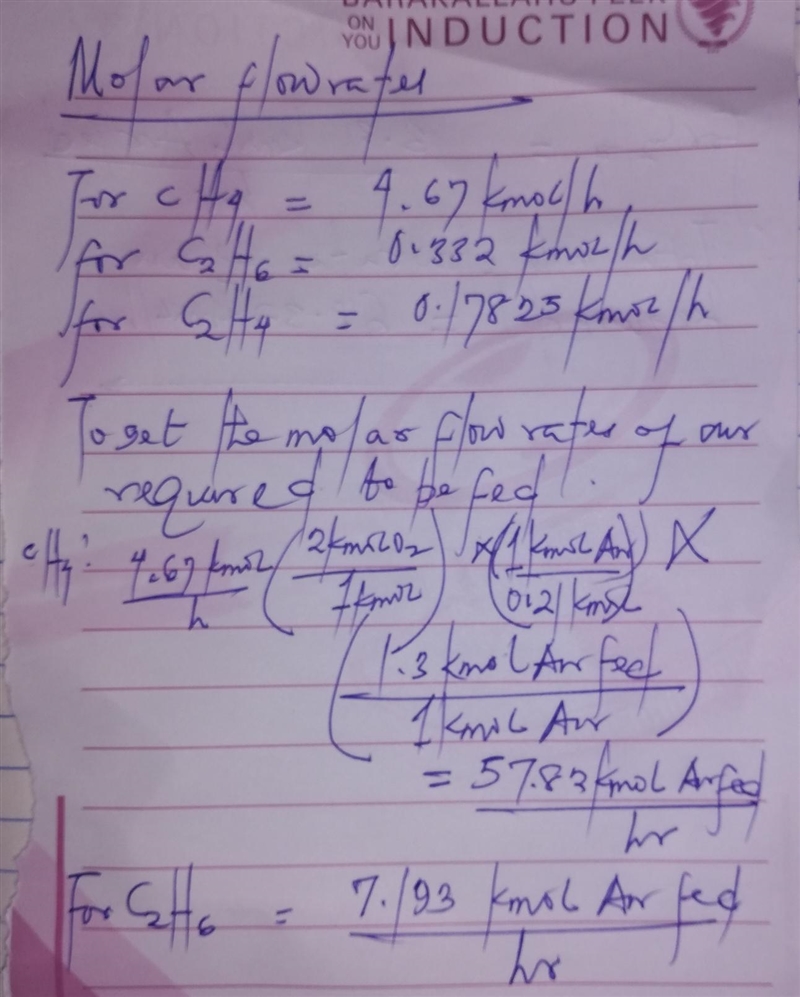 ON
YOU INDUCTION
Molar flowrates
For CH4 = 4.67 kmol/h
for C2H6 = 0.332 kmol/h
for C2H4 = 0.17825 kmol/h
To get the molar flow rates of our
required to be fed.
CH4: 4.67 kmol/h (2 kmol O2/1 kmol) × (1 kmol Air/0.21 kmol) ×
(1.3 kmol Air fed/1 kmol Air)
= 57.82 kmol Air fed/hr
For C2H6 = 7.193 kmol Air fed/hr